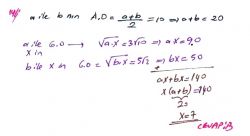 a ile b nin A.O = a+b/2 = 10 ⇒ a+b = 20
a ile x in G.O → √a.x = 3√10 ⇒ ax = 90
b ile x in G.O = √b.x = 5√2 ⇒ bx = 50
ax+bx = 140
x(a+b) = 140
x=7
CEVAP:B